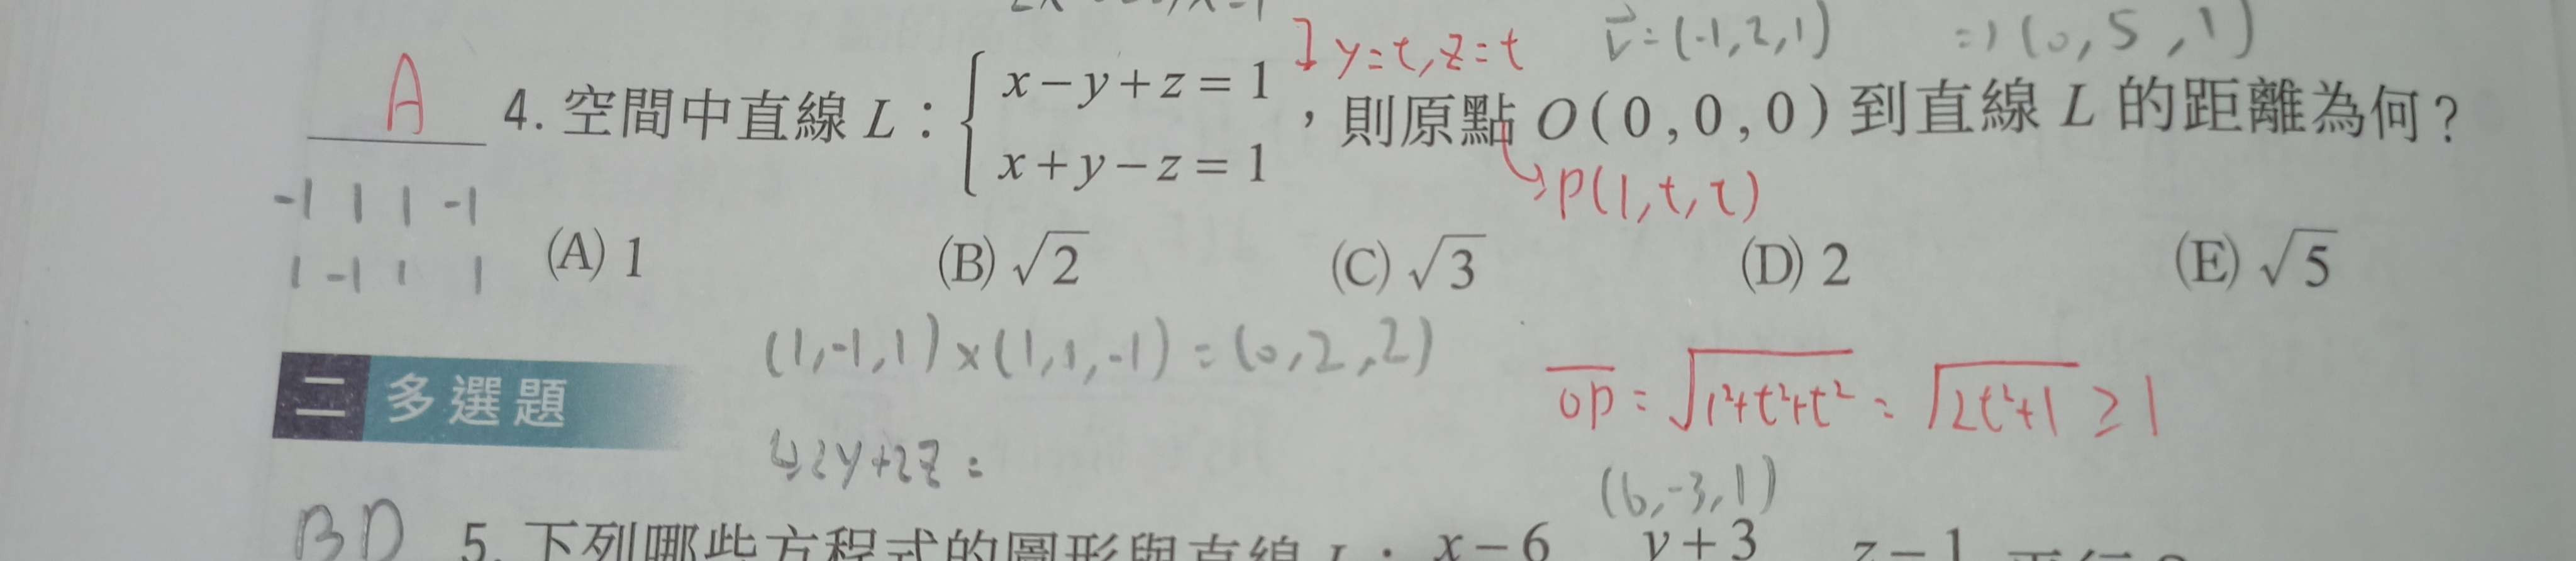 ]y=t, z=t v⃗=(-1,2,1) ⇒(0,5,1)
A 4. 空間中直線 L：{ x-y+z=1
x+y-z=1 ，則原點 O(0,0,0) 到直線 L 的距離為何？
→P(1,t,t)
-1 1 1 -1
1 -1 1 1
(A) 1 (B) √2 (C) √3 (D) 2 (E) √5
(1,-1,1)×(1,1,-1)=(0,2,2)
二 多選題
OP=√1²+t²+t²=√2t²+1≥1
↳2y+2z=
(6,-3,1)
BD 5. 下列哪些方程式的圖形與直線 L： x-6 y+3 z-1 平行？